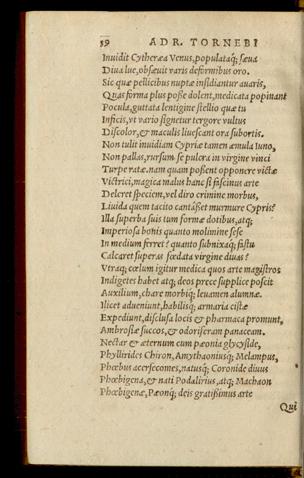 59 ADR. TORNEBI
Inuidit Cytheræa Venus, populataq; sæua
Diua lue, obsæuit varis deformibus oro.
Sic quæ pellicibus nuptæ insidiantur auaris,
Quas forma plus posse dolent, medicata popinant
Pocula, guttata lentigine stellio quæ tu
Inficis, vt vario signetur tergore vultus
Discolor, & maculis liuescant ora subortis.
Non tulit inuidiam Cypriæ tamen æmula Iuno,
Non pallas, rursum se pulcra in virgine vinci
Turpe ratæ. nam quam possent opponere victæ
Victrici, magica malus hanc si fascinus arte
Deleret speciem, vel diro crimine morbus,
Liuida quem tacito cantasset murmure Cypris?
Illa superba suis tum formæ dotibus, atq;
Imperiosa bonis quanto molimine sese
In medium ferret? quanto subnixaq; fastu
Calcaret superas fœdata virgine diuas?
Vtraq; cœlum igitur medica quos arte magistros
Indigetes habet atq; deos prece supplice poscit
Auxilium, charæ morbiq; leuamen alumnæ.
Ilicet adueniunt, habilisq; armaria cistæ
Expediunt, disclusa locis & pharmaca promunt,
Ambrosiæ succos, & odoriferam panaceam.
Nectar & æternum cum pæonia glycyside,
Phyllirides Chiron, Amythaoniusq; Melampus,
Phœbus acersecomes, natusq; Coronide diuus
Phœbigena, & nati Podalirius, atq; Machaon
Phœbigenæ, Pæonq; deis gratissimus arte
Qui